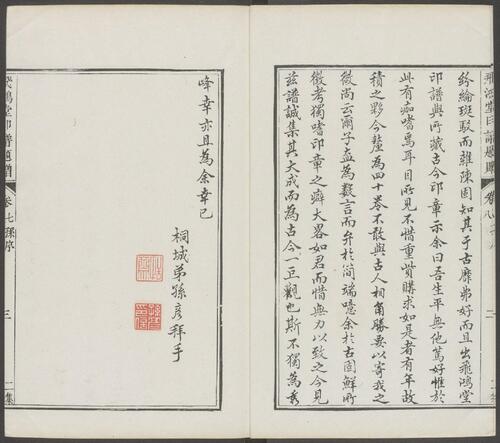 紛綸斑駁而雜陳固知其于古靡弗好而且出飛鴻堂
印譜與所藏古今印章示余曰吾生平無他篤好惟於
此有痂嗜焉耳目所見不惜重貲購求如是者有年故
積之夥今釐為四十卷不敢與古人相角勝要以寄我之
微尚云爾子盍為數言而弁於簡端噫余於古固鮮所
徵考獨嗜印章之癖大畧如君而惜無力以致之今見
茲譜誠集其大成而為古今一巨觀也斯不獨為秀
峰幸亦且為余幸已
桐城弟孫彦拜手
飛鴻堂印譜題贈 卷七 序 三 二集